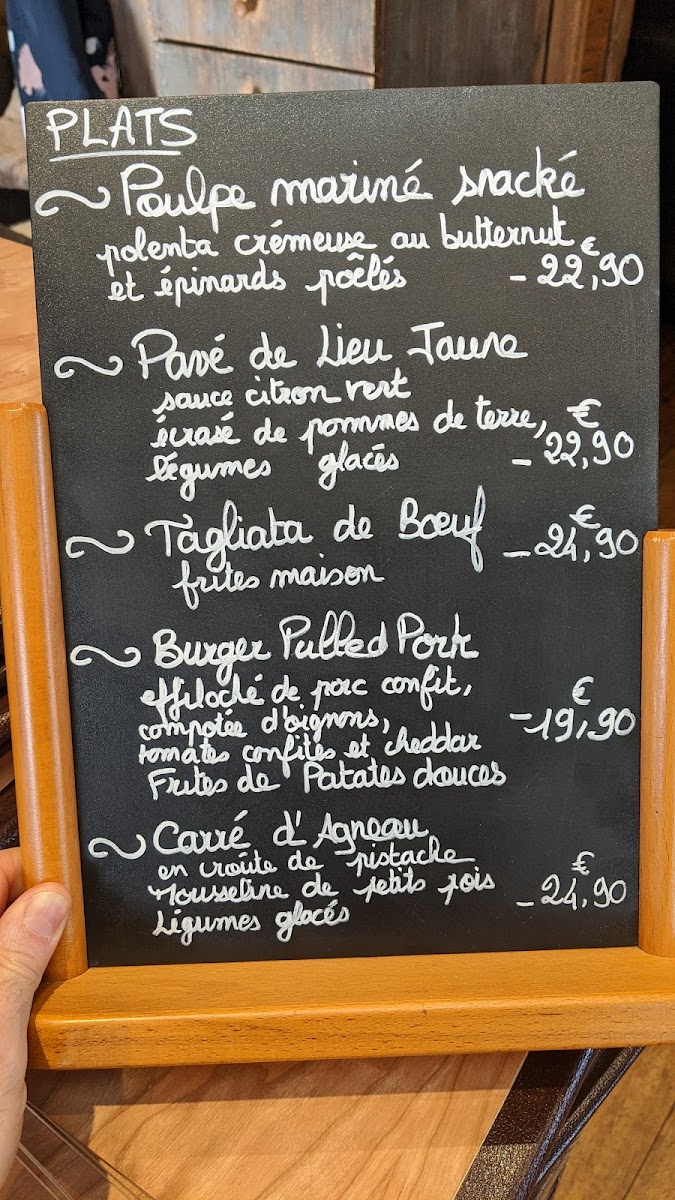 PLATS
Poulpe mariné snacké
polenta crémeuse au butternut
et épinards poêlés - 22,90 €
Pavé de Lieu Jaune
sauce citron vert
écrasé de pommes de terre,
légumes glacés - 22,90 €
Tagliata de Bœuf - 24,90 €
frites maison
Burger Pulled Pork
effiloché de porc confit,
compotée d'oignons, - 19,90 €
tomates confites et cheddar
Frites de Patates douces
Carré d'Agneau
en croûte de pistache
Mousseline de petits pois - 24,90 €
Légumes glacés